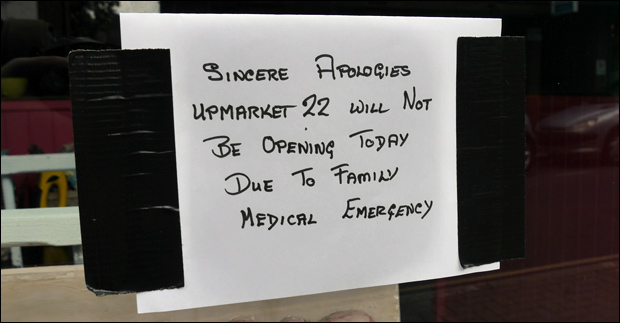 Sincere Apologies
Upmarket 22 will Not
Be Opening Today
Due To Family
Medical Emergency